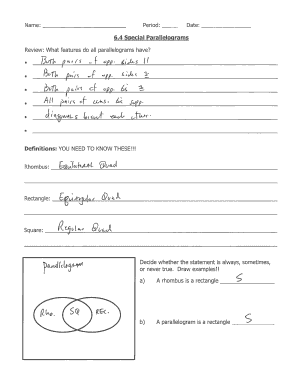 Name: Period: Date:
6.4 Special Parallelograms
Review: What features do all parallelograms have?
• Both pairs of opp. sides ||
• Both pairs of opp sides ≅
• Both pairs of opp ∠s ≅
• All pairs of cons. ∠s supp.
• diagonals bisect each other.
•
Definitions: YOU NEED TO KNOW THESE!!!
Rhombus: Equilateral Quad
Rectangle: Equiangular Quad
Square: Regular Quad
parallelogram
Rho. SQ REC.
Decide whether the statement is always, sometimes,
or never true. Draw examples!!
a) A rhombus is a rectangle S
b) A parallelogram is a rectangle S